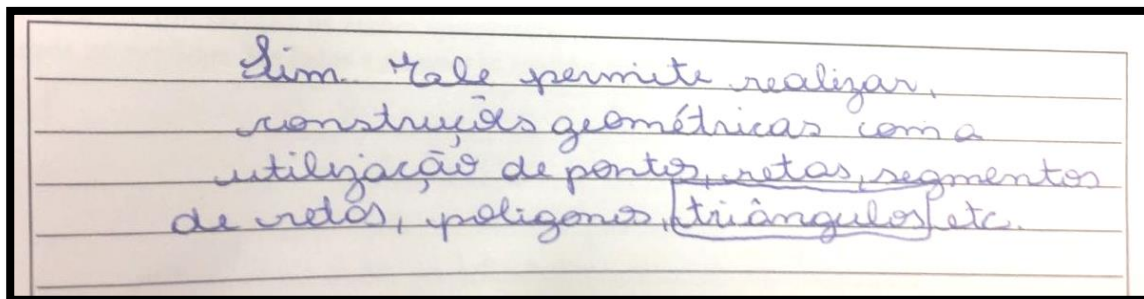 Sim. Ele permite realizar,
construções geométricas com a
utilização de pontos, retas, segmentos
de retas, poligonos, triângulos etc.